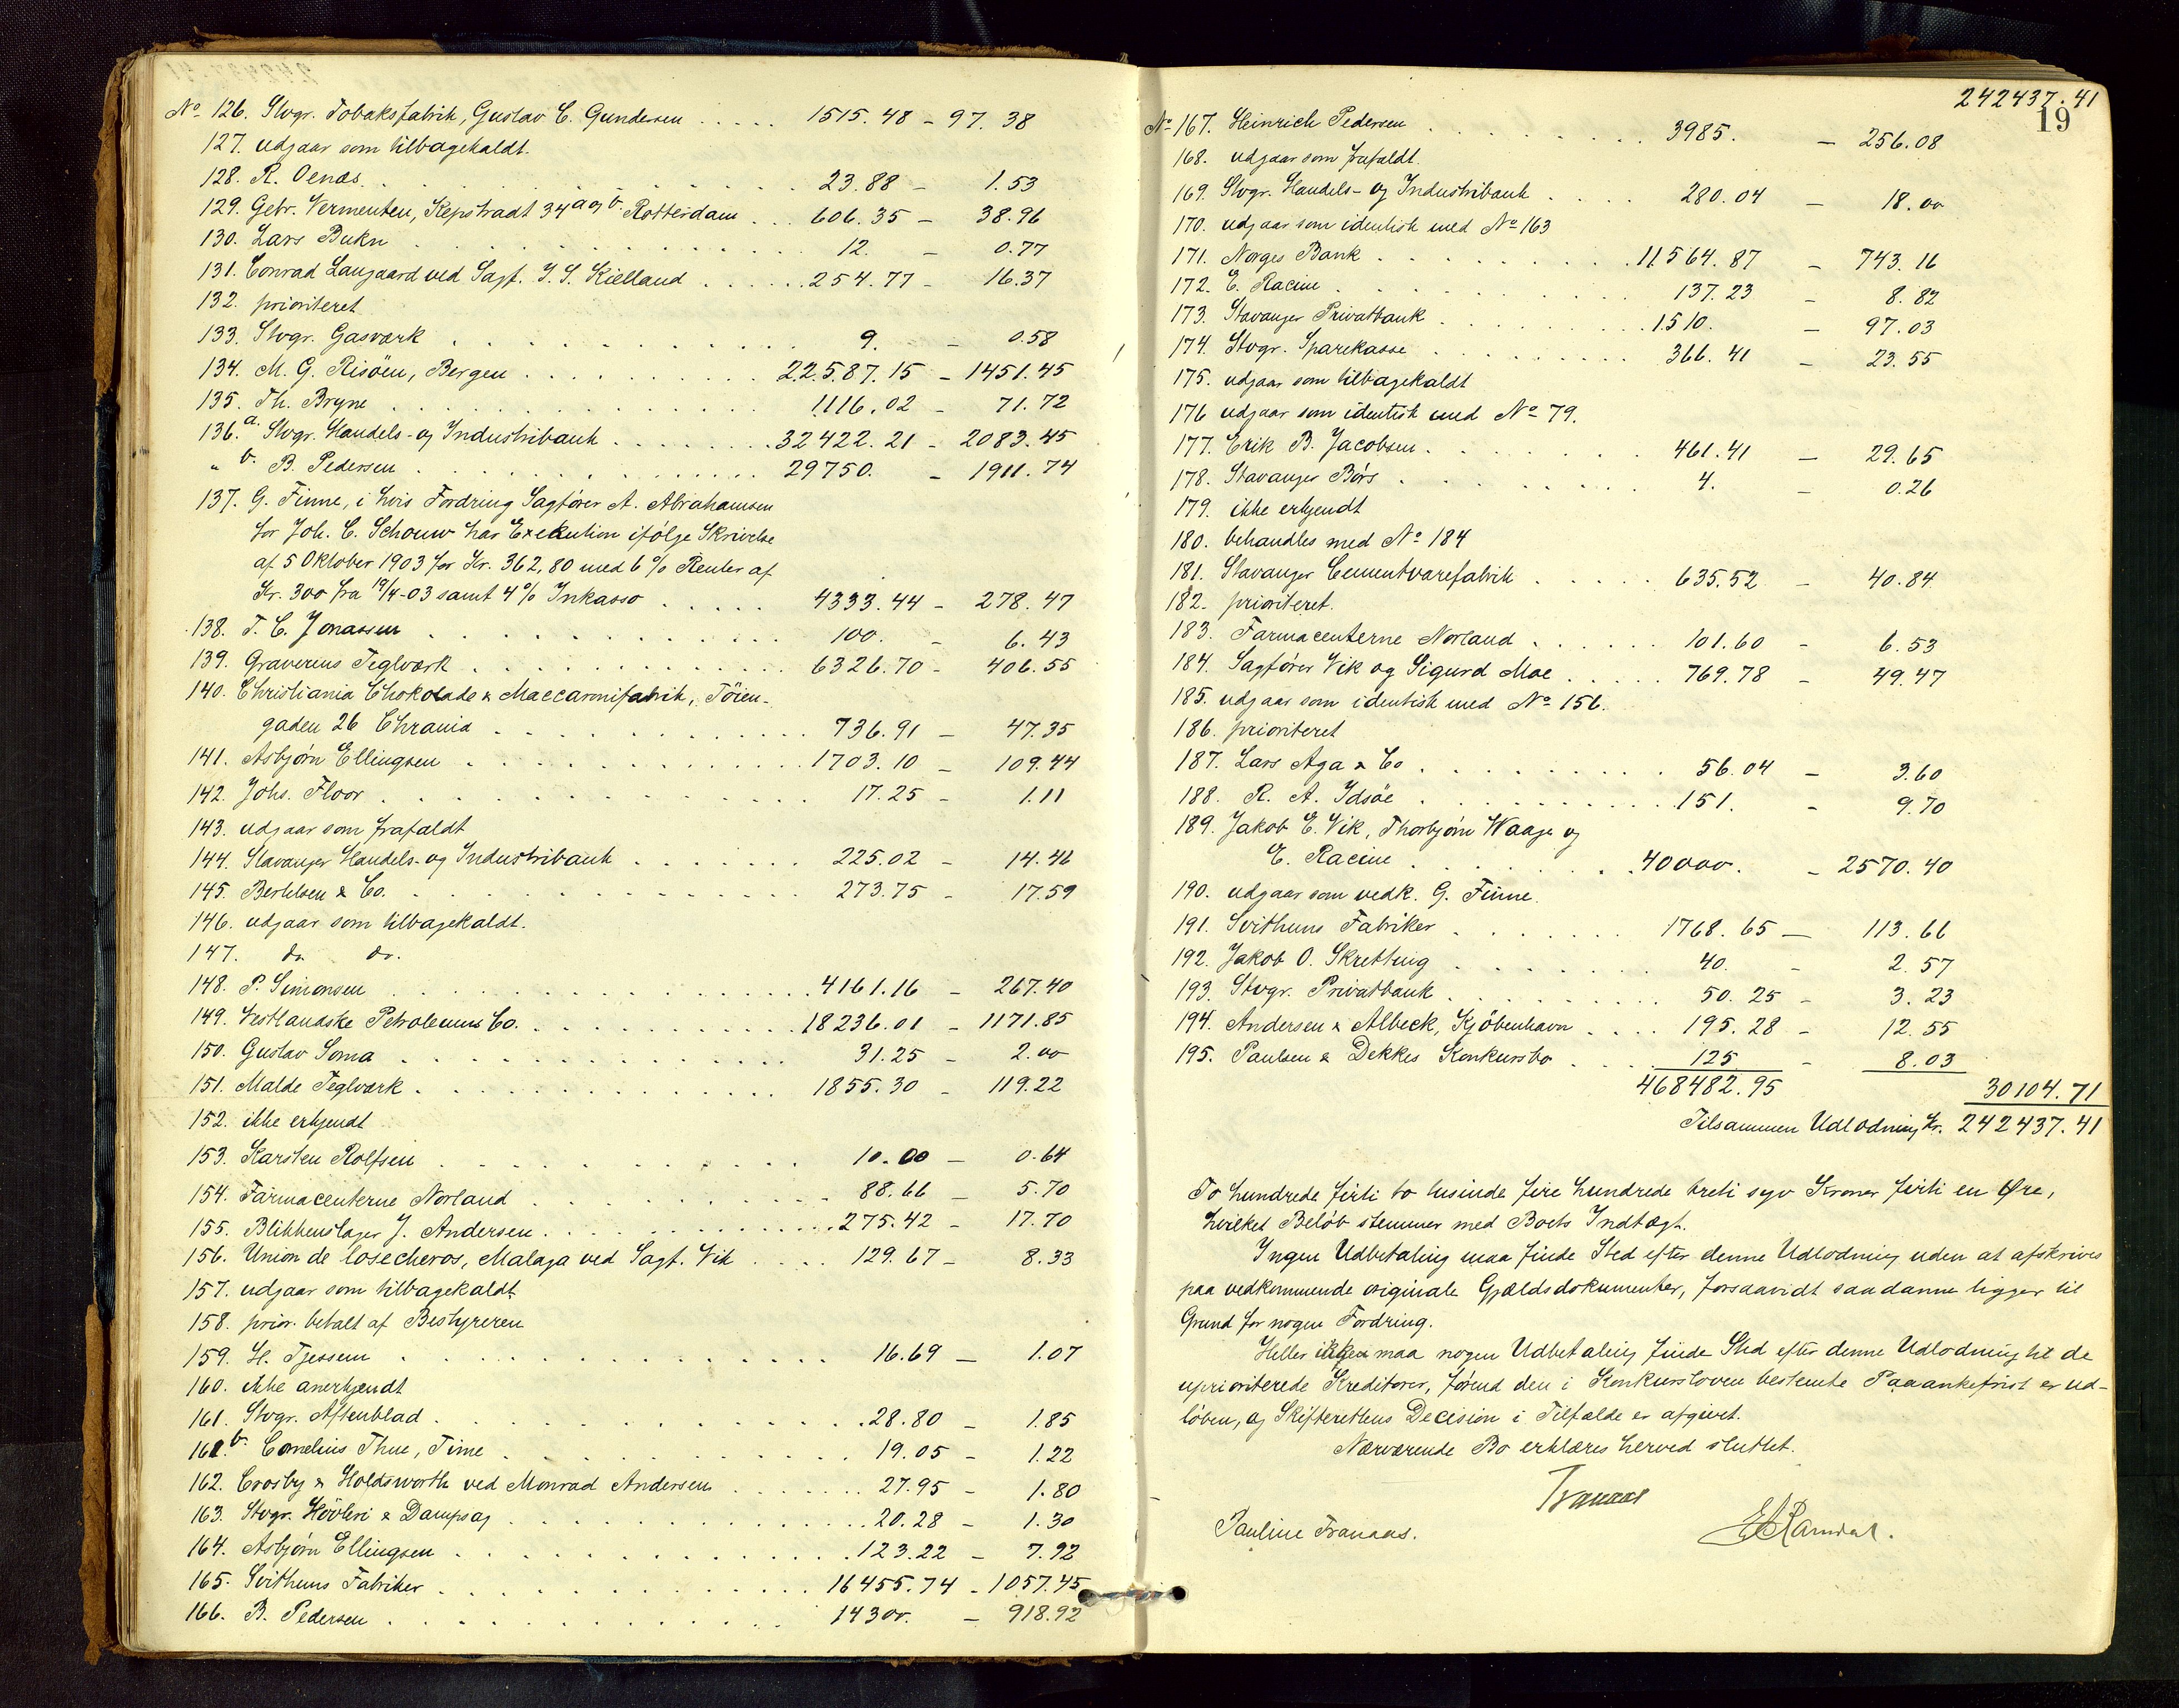 No 126. Stvgr. Tobaksfabrik, Gustav C. Gundersen ..... 1515.48 - 97.38
127. udgaar som tilbagekaldt.
128. R. Oenæs. ..... 23.88 - 1.53
129. Gebr. Vermenten, Kepstradt 34 a og b. Rotterdam ... 606.35 - 38.96
130. Lars Bukn ..... 12. - 0.77
131. Conrad Langaard ved Sagf. J. S. Kielland ..... 254.77 - 16.37
132. prioriteret
133. Stvgr. Gasværk ..... 9. - 0.58
134. M. G. Risöen, Bergen ..... 22587.15 - 1451.45
135. Th. Bryne ..... 1116.02 - 71.72
136. a. Stvgr. Handels- og Industribank ..... 32422.21 - 2083.45
" b. B. Pedersen ..... 29750. - 1911.74
137. G. Finne, i hvis Fordring Sagfører A. Abrahamsen
for Joh. C. Schouw har Exekution ifølge Skrivelse
af 5 Oktober 1903 for Kr. 362,80 med 6 % Renter af
Kr. 300 fra 19/4-03 samt 4% Inkasso ..... 4333.44 - 278.47
138. T. C. Jonassen ..... 100. - 6.43
139. Graverens Teglværk ..... 6326.70 - 406.55
140. Christiania Chokolade & Maccaronifabrik, Töien-
gaden 26 Chrania ..... 736.91 - 47.35
141. Asbjørn Ellingsen ..... 1703.10 - 109.44
142. Johs. Floor ..... 17.25 - 1.11
143. udgaar som frafaldt
144. Stavanger Handels- og Industribank ..... 225.02 - 14.46
145. Berthelsen & Co. ..... 273.75 - 17.59
146. udgaar som tilbagekaldt.
147. do do.
148. P. Simonsen ..... 4161.16 - 267.40
149. Vestlandske Petroleums Co. ..... 18236.01 - 1171.85
150. Gustav Soma ..... 31.25 - 2.00
151. Malde Teglværk ..... 1855.30 - 119.22
152. ikke erkjendt
153. Karsten Rolfsen ..... 10.00 - 0.64
154. Farmaceuterne Norland ..... 88.66 - 5.70
155. Blikkenslager J. Andersen ..... 275.42 - 17.70
156. Union de losecheros, Malaga ved Sagf. Vik .... 129.67 - 8.33
157. udgaar som tilbagekaldt
158. prior. betalt af Bestyreren
159. H. Tjessem ..... 16.69 - 1.07
160. ikke anerkjendt
161. Stvgr. Aftenblad ..... 28.80 - 1.85
161 b. Cornelius Thue, Time ..... 19.05 - 1.22
162. Crosby & Holdsworth ved Monrad Andersen ..... 27.95 - 1.80
163. Stvgr. Hövleri & Dampsag ..... 20.28 - 1.30
164. Asbjørn Ellingsen ..... 123.22 - 7.92
165. Svithuns Fabriker ..... 16455.74 - 1057.45
166. B. Pedersen ..... 14300. - 918.92
242437.41
19
No 167. Heinrich Pedersen ..... 3985. - 256.08
168. udgaar som frafaldt.
169. Stvgr. Handels- og Industribank .... 280.04 - 18.00
170. udgaar som identisk med No 163
171. Norges Bank ..... 11564.87 - 743.16
172. E. Racine ..... 137.23 - 8.82
173. Stavanger Privatbank ..... 1510. - 97.03
174. Stvgr. Sparekasse ..... 366.41 - 23.55
175. udgaar som tilbagekaldt
176 udgaar som identisk med No 79.
177. Erik B. Jacobsen ..... 461.41 - 29.65
178. Stavanger Børs ..... 4. - 0.26
179. ikke erkjendt
180. behandles med No 184
181. Stavanger Cementvarefabrik ..... 635.52 - 40.84
182. prioriteret.
183. Farmaceuterne Norland ..... 101.60 - 6.53
184. Sagfører Vik og Sigurd Moe ..... 769.78 - 49.47
185. udgaar som identisk med No 156.
186. prioriteret
187. Lars Aga & Co ..... 56.04 - 3.60
188. R. A. Idsöe ..... 151. - 9.70
189. Jakob E. Vik, Thorbjørn Waage og
E. Racine ..... 40000. - 2570.40
190. udgaar som vedk. G. Finne.
191. Svithuns Fabriker ..... 1768.65 - 113.66
192. Jakob O. Skretting ..... 40. - 2.57
193. Stvgr. Privatbank ..... 50.25 - 3.23
194. Andersen & Albeck, Kjöbenhavn .... 195.28 - 12.55
195. Paulsen & Dekkes Konkursbo ... 125 - 8.03
468482.95 30104.71
Tilsammen Udlodning Kr. 242437.41
To hundrede firti to tusinde fire hundrede treti syv Kroner firti en Øre,
hvilket Beløb stemmer med Boets Indtægt.
Ingen Udbetaling maa finde Sted efter denne Udlodning uden at afskrives
paa vedkommende originale Gjældsdokumenter, forsaavidt saadanne ligger til
Grund for nogen Fordring.
Heller ikke maa nogen Udbetaling finde Sted efter denne Udlodning til de
uprioriterede Kreditorer, førend den i Konkursloven bestemte Paaankefrist er ud-
løben, og Skifterettens Decision i Tilfælde er afgivet.
Nærværende Bo erklæres herved sluttet.
Tranaas
Pauline Tranaas.